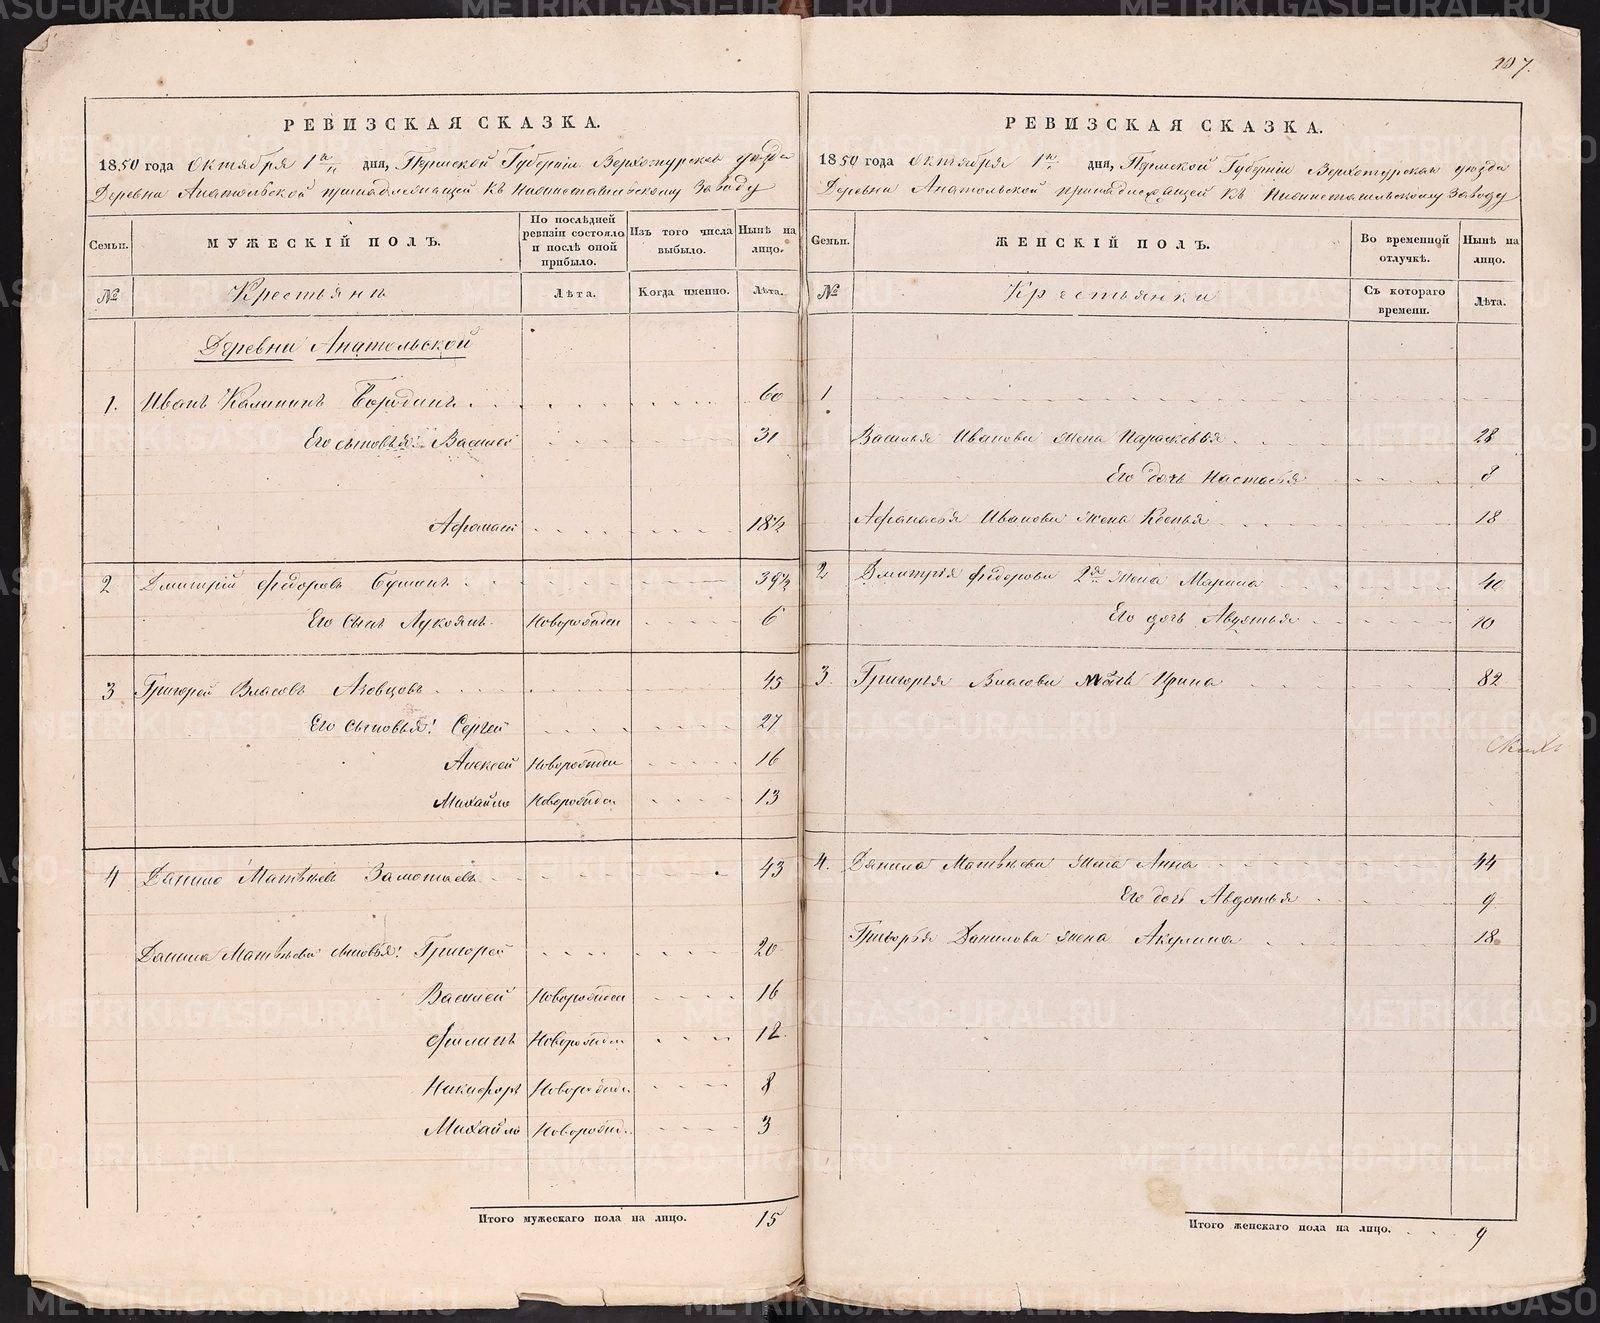 207.
РЕВИЗСКАЯ СКАЗКА.
1850 года Октября 1го дня, Пермской Губерніи Верхотурскаго уезда
Деревни Анатольской принадлежащей къ Нижнетагильскому Заводу
Семьи.
МУЖЕСКІЙ ПОЛЪ.
По послѣдней ревизіи состояло и послѣ оной прибыло.
Изъ того числа выбыло.
Нынѣ на лицо.
№
Крестьянъ
Лѣта.
Когда именно.
Лѣта.
Деревни Анатольской
1. Иванъ Калининъ 60
Его сыновья: Василей 31
Афанасей 18½
2 Дмитрій Федоровъ 39½
Его сынъ Лукоянъ Новорожден 6
3 Григорей Власовъ 45
Его сыновья: Сергей 27
Алексей Новорожден 16
Михайло Новорожден 13
4 Данило Матвѣевъ 43
Данила Матвѣева сыновья: Григорей 20
Василей Новорожден 16
Филипъ Новорожден 12
Никифоръ Новорожден 8
Михайло Новорожд. 3
Итого мужескаго пола на лицо. 15
РЕВИЗСКАЯ СКАЗКА.
1850 года Октября 1го дня, Пермской Губерніи Верхотурскаго уезда
Деревни Анатольской принадлежащей къ Нижнетагильскому Заводу
Семьи.
ЖЕНСКІЙ ПОЛЪ.
Во временной отлучкѣ.
Нынѣ на лицо.
№
Крестьянки
Съ котораго времени.
Лѣта.
1
Василья Иванова жена Парасковья 28
Его дочь Настасья 8
Афанасья Иванова жена Ксенья 18
2 Дмитрія Федорова 2я жена Марина 40
Его дочь Авдотья 10
3. Григорья Власова мать Ирина 82
4. Данила Матвѣева жена Анна 44
Его дочь Авдотья 9
Григорья Данилова жена Акулина 18
Итого женскаго пола на лицо. 9
METRIKI.GASO-URAL.RU